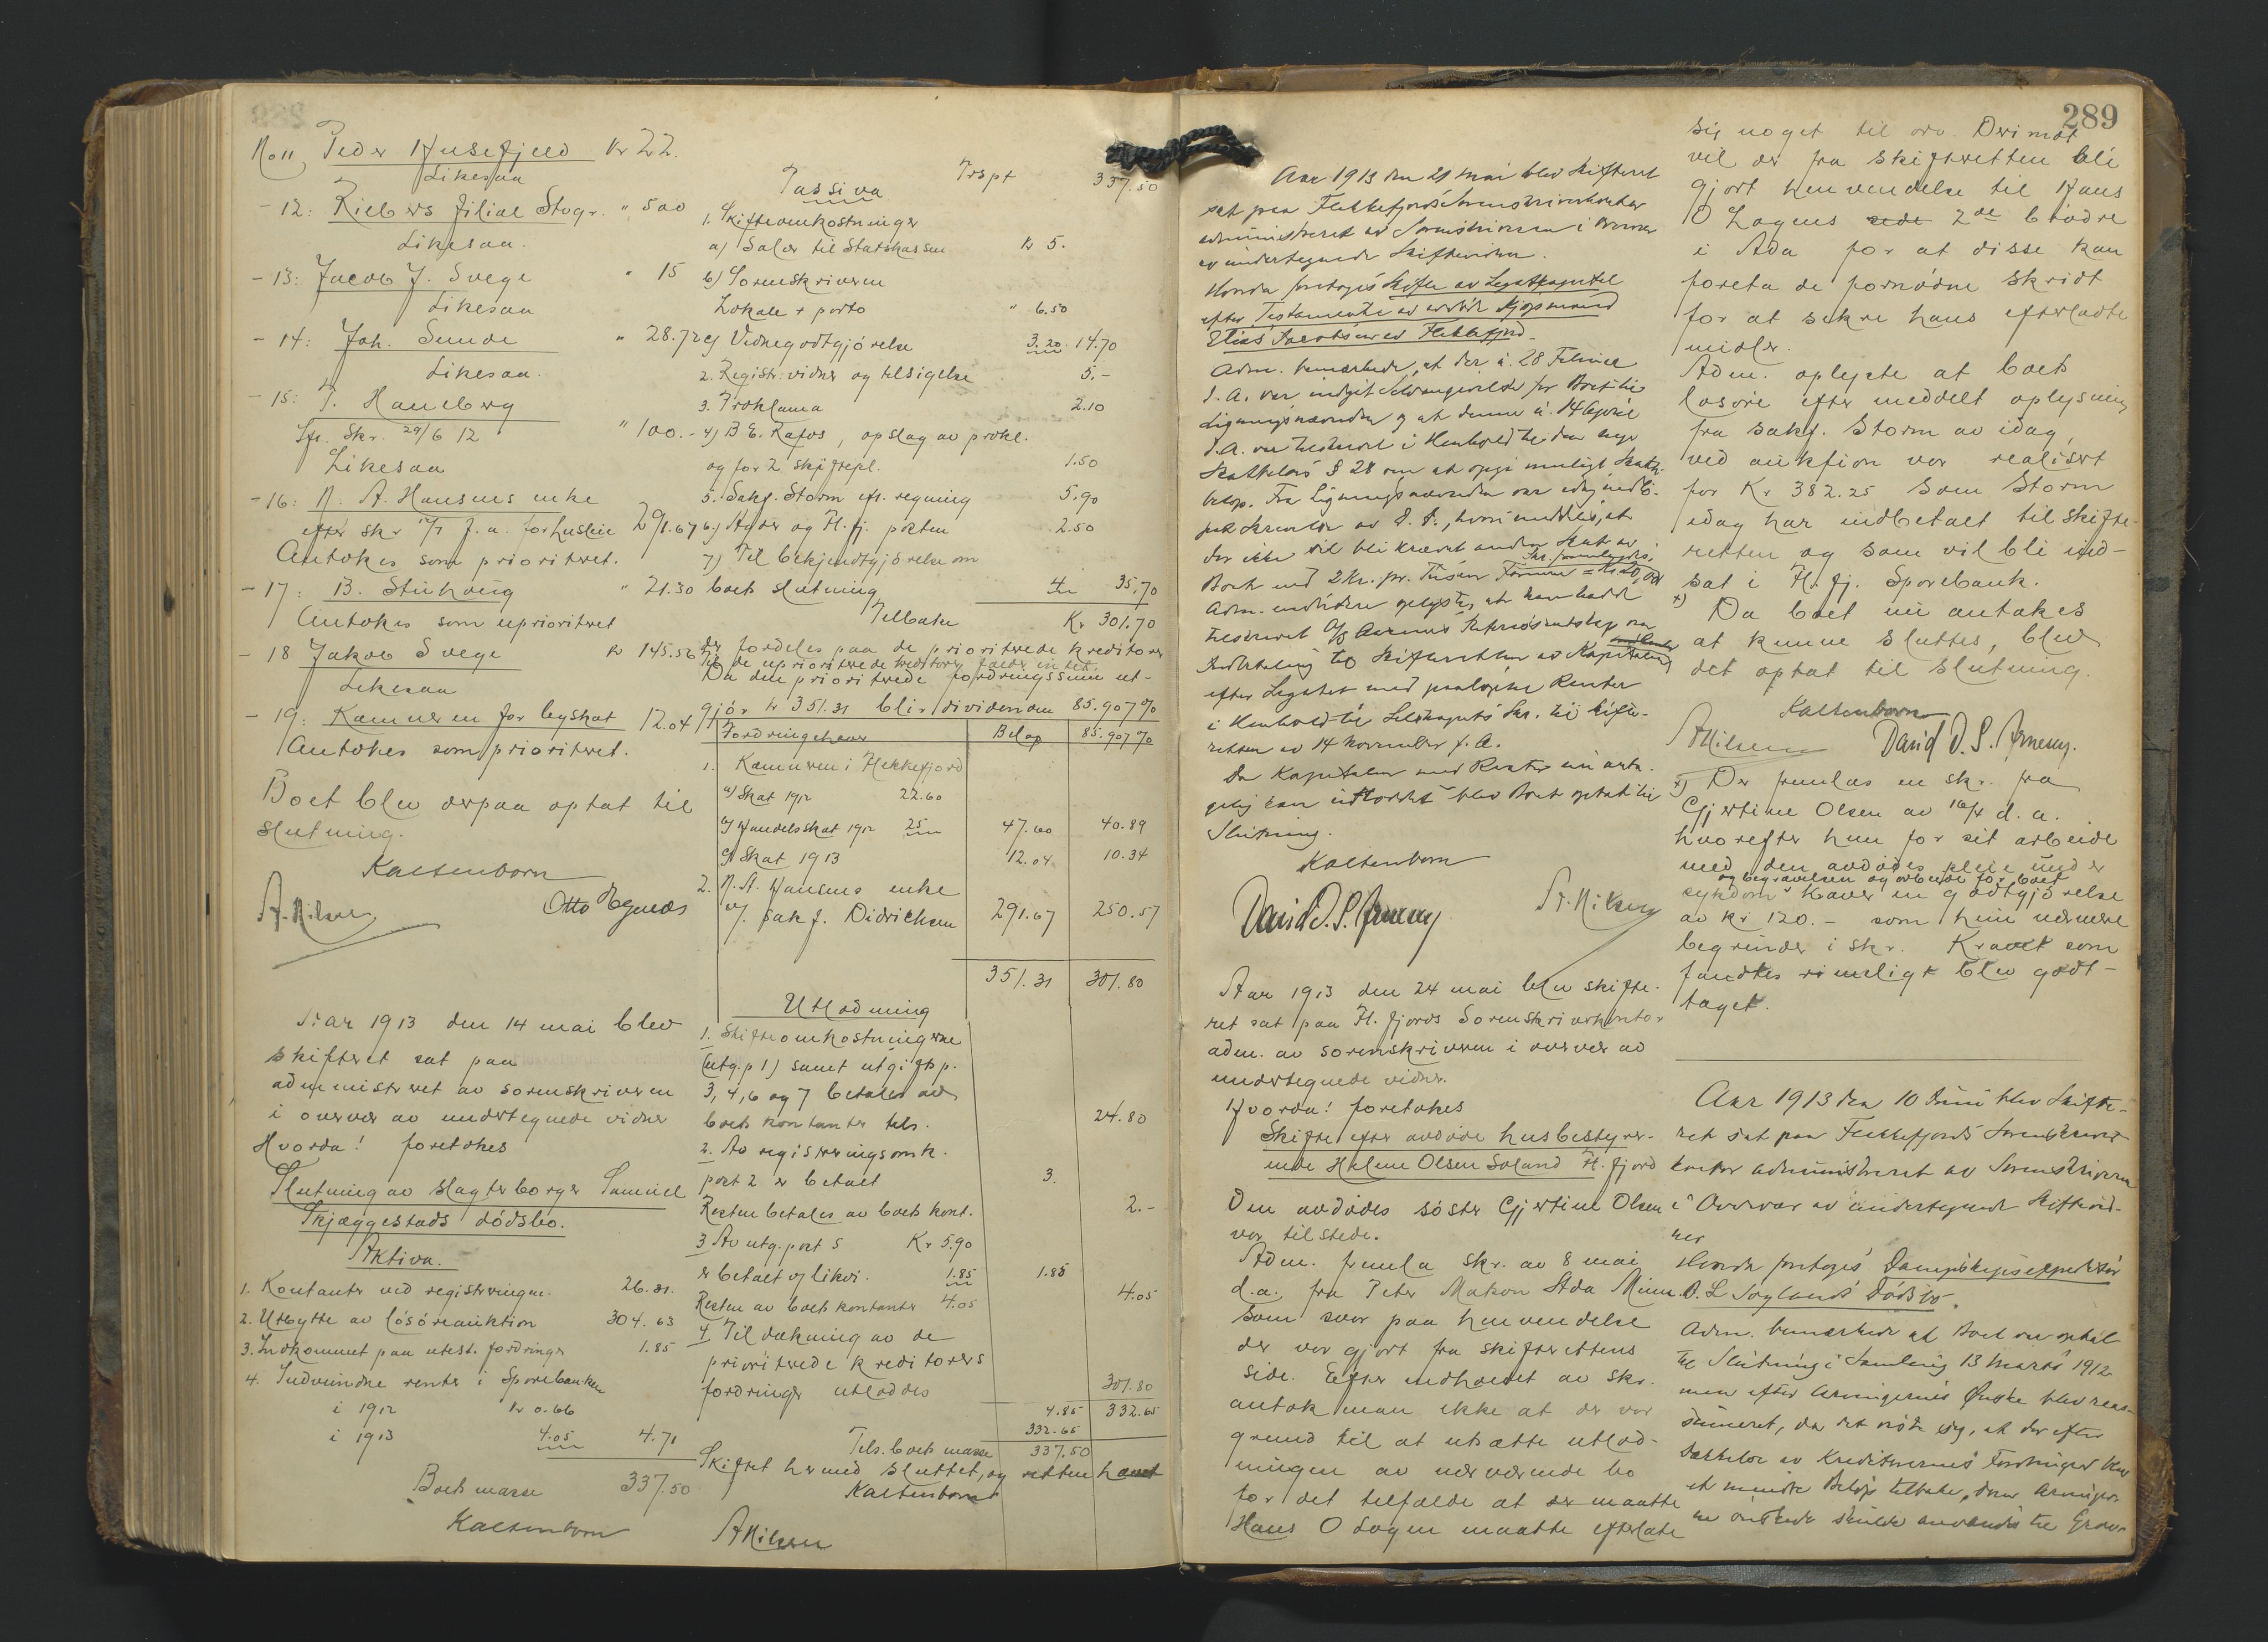 No 11 Peder Husefjeld Kr 22.
Likesaa
- 12: Kiebers filial Stvgr. " 500
Likesaa.
- 13: Jacob J. Svege " 15
Likesaa
- 14: Joh. Sunde " 28.72
Likesaa.
- 15: T. Haneberg
Ifr. Skr. 29/6 12 " 100.-
Likesaa
- 16: N. A. Hansens enke
efter skr 17/7 f.a. for husleie 291.67
Antokes som prioritert.
- 17: B. Stuhaug " 21.30
Antokes som uprioritert
- 18 Jakob Svege Kr 145.56
Likesaa
- 19: Kæmneren for byskat 12.04
Antokes som prioritert.
Boet blev derpaa optat til
slutning.
Kaltenborn
A. Nilsen Otto Egenes
Aar 1913 den 14 mai blev
skifteret sat paa
administreret av sorenskriveren
i overvær av undertegnede vidner
Hvorda! foretokes
Slutning av slagterborger Samuel
Skjæggestads dødsbo.
Aktiva.
1. Kontanter ved registreringen. 26.31.
2. Utbytte av løsøreauktion 304.63
3. Indkommet paa utest. fordringer 1.85
4. Indvundne renter i Sparebanken
i 1912 Kr 0.66
i 1913 4.05 4.71
Boets masse 337.50
Kaltenborn
Passiva Trspt 337.50
1. Skifteomkostninger
a) Salær til Statskassen Kr 5.
b) Sorenskriveren
Lokale + porto " 6.50
c) Vidnegodtgjørelse 3.20 14.70
2. Registr. vidner og tilsigelse 5.-
3. Proklama 2.10
4) B E. Rafos, opslag av prokl.
og for 2 skiftepl. 1.50
5. Sakf. Storm efr. regning 5.90
6) Agder og Fl. fj. posten 2.50
7) Til bekjendtgjørelse om
boets slutning 4.- 35.70
Tilbake Kr 301.70
der fordeles paa de prioriterede kreditorer
Til de uprioriterede kreditorer falder intet.
Da den prioriterede fordringssum ut-
gjør kr 351.31 blir dividenden 85.907 %
Fordringshaver Beløp 85.907 %
1. Kæmneren i Flekkefjord
a) Skat 1912 22.60
b) Handelsskat 1912 25 47.60 40.89
c) Skat 1913 12.04 10.34
2. N. A. Hansens enke
v/ sakf. Didrichsen 291.67 250.57
351.31 301.80
Utlodning
1. Skifteomkostningerne
(utg. p 1) samt utgiftsp.
3, 4, 6 og 7 betales av
boets kontanter tils. 24.80
2. Av registreringsomk.
post 2 er betalt 3.
Resten betales av boets kont. 2.-
3 Av utg. post 5 Kr 5.90
er betalt v/ likvi. 1.85 1.85
Resten av boets kontanter 4.05 4.05
4 Til dækning av de
prioriterede kreditorers
fordringer utloddes 301.80
4.85 332.65
332.65
Tils. boets masse 337.50
Skiftet hermed sluttet, og retten hævet
Kaltenborn
A Nilsen
289
Aar 1913 den 21 mai blev skifteret
sat paa Flekkefjords Sorenskriverkontor
administreret av Sorenskriveren i overvær
av undertegnede skiftevidner.
Hvorda foretoges Skifte av Legatkapital
efter Testamente av avdøde Kjøpmand
Elias Jacobsen av Flekkefjord.
Adm. bemærkede, at der u. 28 Februar
d. A. var indgit Selvangivelse for Boet til
Ligningsnævnden og at denne u. 14 April
d. A. var tilskrevet i Henhold til den nye
Skattelovs § 28 om at opgi muligt Skatte-
beløp. Fra Ligningsnævnden var idag indlø-
pet Skrivelse av d. D., hvori meddeles, at
der ikke vil bli krævet anden Skat av
Boet end 2 Kr. pr. Tusen Formue = Kr 20,00
Skr. fremlagdes.
Adm. endvidere oplyste, at han hadde
tilskrevet
Indbetaling til Skifteretten av Kapitalen
efter Legatet med paaløpne Renter
i Henhold til Selskapets Skr. til Skifte-
retten av 14 November f. A.
Da Kapitalen med Renter nu anta-
gelig kan utloddes blev Boet optat til
Slutning.
Kaltenborn
David D. S. Jerneng A. Nilsen
Aar 1913 den 24 mai blev skifte-
ret sat paa Fl. fjords Sorenskriverkontor
adm. av sorenskriveren i overvær av
undertegnede vidner.
Hvorda! foretokes
Skifte efter avdøde husbestyrer-
inde Helene Olsen Soland Fl. fjord
Den avdødes søster Gjertine Olsen
var tilstede.
Adm. fremla skr. av 8 mai
d.a. fra Peter Matson Ada Minn.
som svar paa henvendelse
der var gjort fra skifterettens
side. Efter indholdet av skr.
antok man ikke at der var
grund til at utsætte utlod-
ningen av nærværende bo
for det tilfælde at der maatte
Hans O Logen maatte efterlate
sig noget til arv. Derimot
vil der fra skifteretten bli
gjort henvendelse til Hans
O Logens 2de brødre
i Ada for at disse kan
foreta de fornødne skridt
for at sikre hans efterladte
midler.
Adm. oplyste at boets
løsøre efter meddelt oplysning
fra sakf. Storm av idag,
ved auktion var realisert
for Kr 382.25 som Storm
idag har indbetalt til skifte-
retten og som vil bli ind-
sat i Fl. fj. Sparebank.
x) Da boet nu antakes
at kunne sluttes, blev
det optat til slutning.
Kaltenborn
A Nilsen David D. S. Jerneng.
x) Der fremlas en skr. fra
Gjertine Olsen av 16/4 d. a.
hvorefter hun for sit arbeide
med den avdødes pleie under
og begravelsen og arbeide for boet
sykdom kræver en godtgjørelse
av kr 120.- som hun nærmere
begrunder i skr. Kravet som
fandtes rimeligt blev godt-
taget.
Aar 1913 den 10 Juni blev Skifte-
ret sat paa Flekkefjords Sorenskriver-
kontor administreret av Sorenskriveren
i Overvær av undertegnede Skiftevid-
ner
Hvorda foretoges Dampskipsexpeditør
D. L Søylands Dødsbo.
Adm. bemærkede at Boet var optat
til Slutning i Samling 13 Marts 1912
men efter Arvingernes Ønske blev reas-
sumeret, da det viste sig, at der efter
Dækkelse av Kreditorernes Fordringer blev
et mindre Beløp tilbake, som Arvinger-
ne ønskede skulde anvendes til Grav-